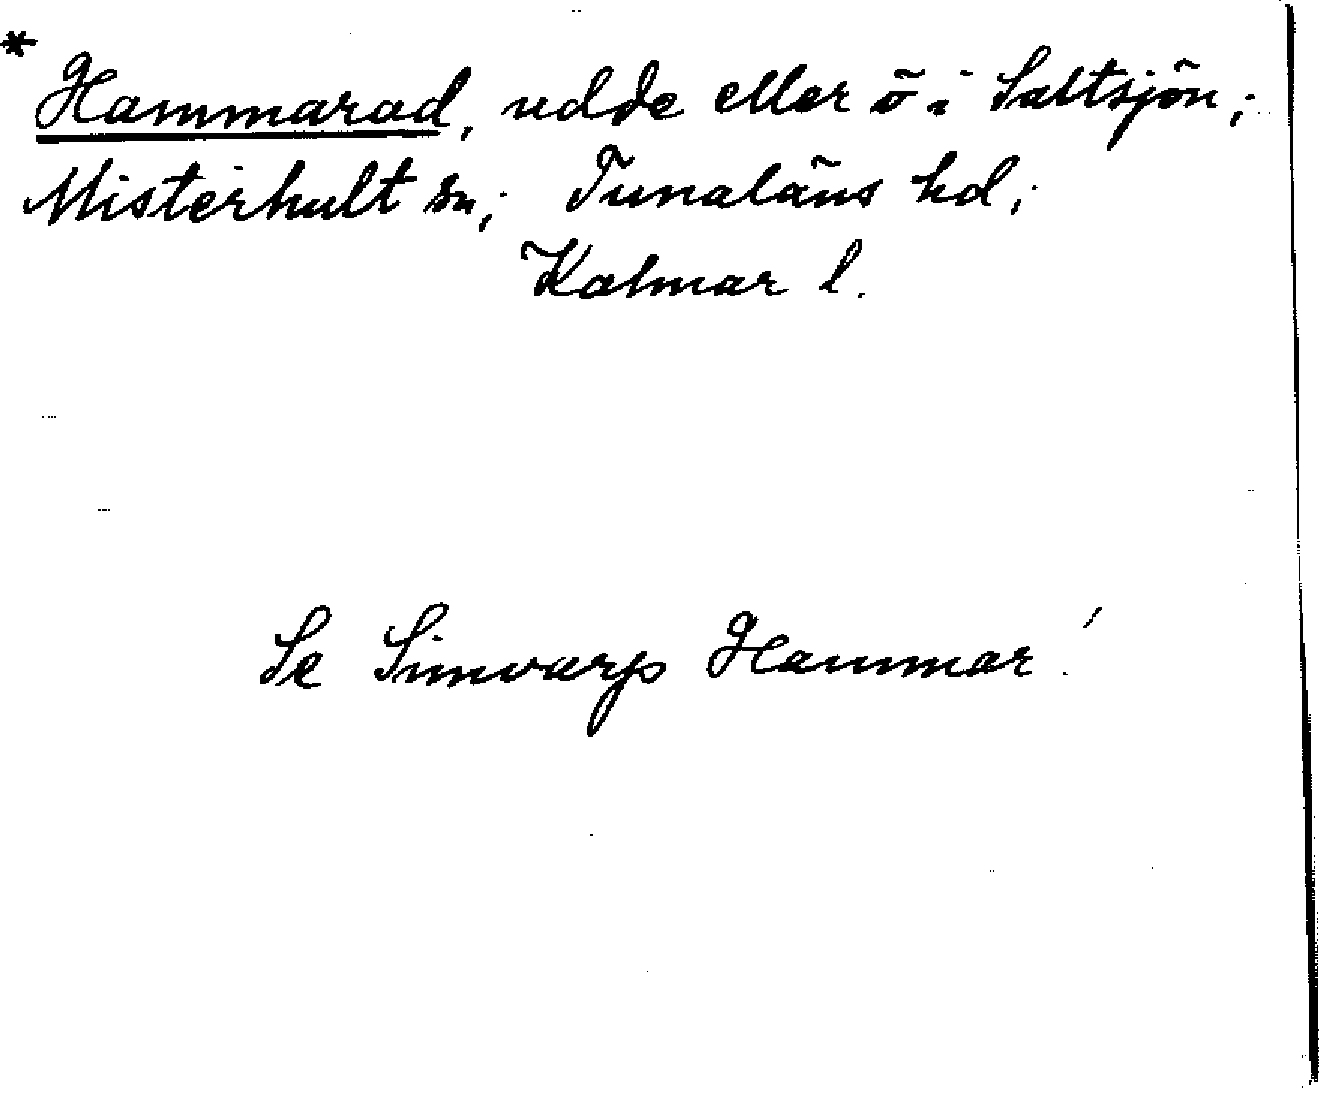 * Hammarad, udde eller ö i Saltsjön;
Misterhult sn; Tunaläns hd;
Kalmar l.
Se Simvarps Hammar!